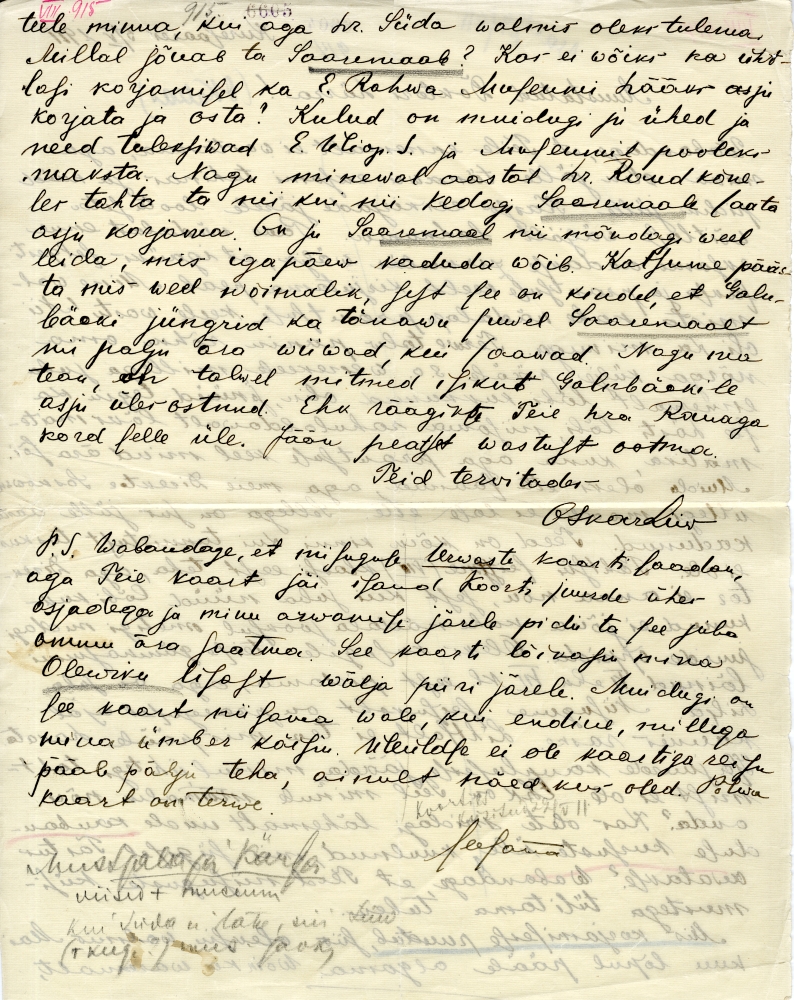 VIII. 915 915 6605
teele minna, kui aga hr. Süda walmis oleks tulema.
Millal jõuab ta Saaremaale? Kas ei wõiks ka üht-
lasi korjamisel ka E. Rahwa Museumi hääks asju
korjata ja osta? Kulud on muidugi ju ühed ja
need tuleksiwad E. Üliop. S. ja Museumil pooleks
maksta. Nagu minewal aastal hr. Raud kõne-
les tahta ta nii kui nii kedagi Saaremaale saata
asju korjama. On ju Saaremaal nii mõndagi weel
leida, mis igapäew kaduda wõib. Katsume pääs-
ta mis weel wõimalik, sest see on kindel, et Galn-
bäcki jüngrid ka tänawu suwel Saaremaalt
nii palju ära wiiwad, kui saawad. Nagu ma
tean, on talwel mitmed isikut Galnbäckile
asju üles ostnud. Ehk räägite Teie hra Rauaga
kord selle üle. Jään peatset wastust ootma.
Teid terwitades
Oskar Liiw
P.S. Wabandage, et niisuguse Urwaste kaarti saadan,
aga Teie kaart jäi isand Koorti juurde ühes
asjadega ja minu arwamise järele pidi ta see juba
ammu ära saatma. See kaarti lõikasin mina
Olewiku lisast wälja piiri järele. Muidugi on
see kaart niisama wale, kui endine, millega
mina ümber käisin. Üleüldse ei ole kaartiga reisu
pääl palju teha, ainult näed kus oled. Põlwa
kaart on terwe.
Seesama
Mustjala ja Kärla
wiisid + museum
kui Süda ei lähe, siis Liiw